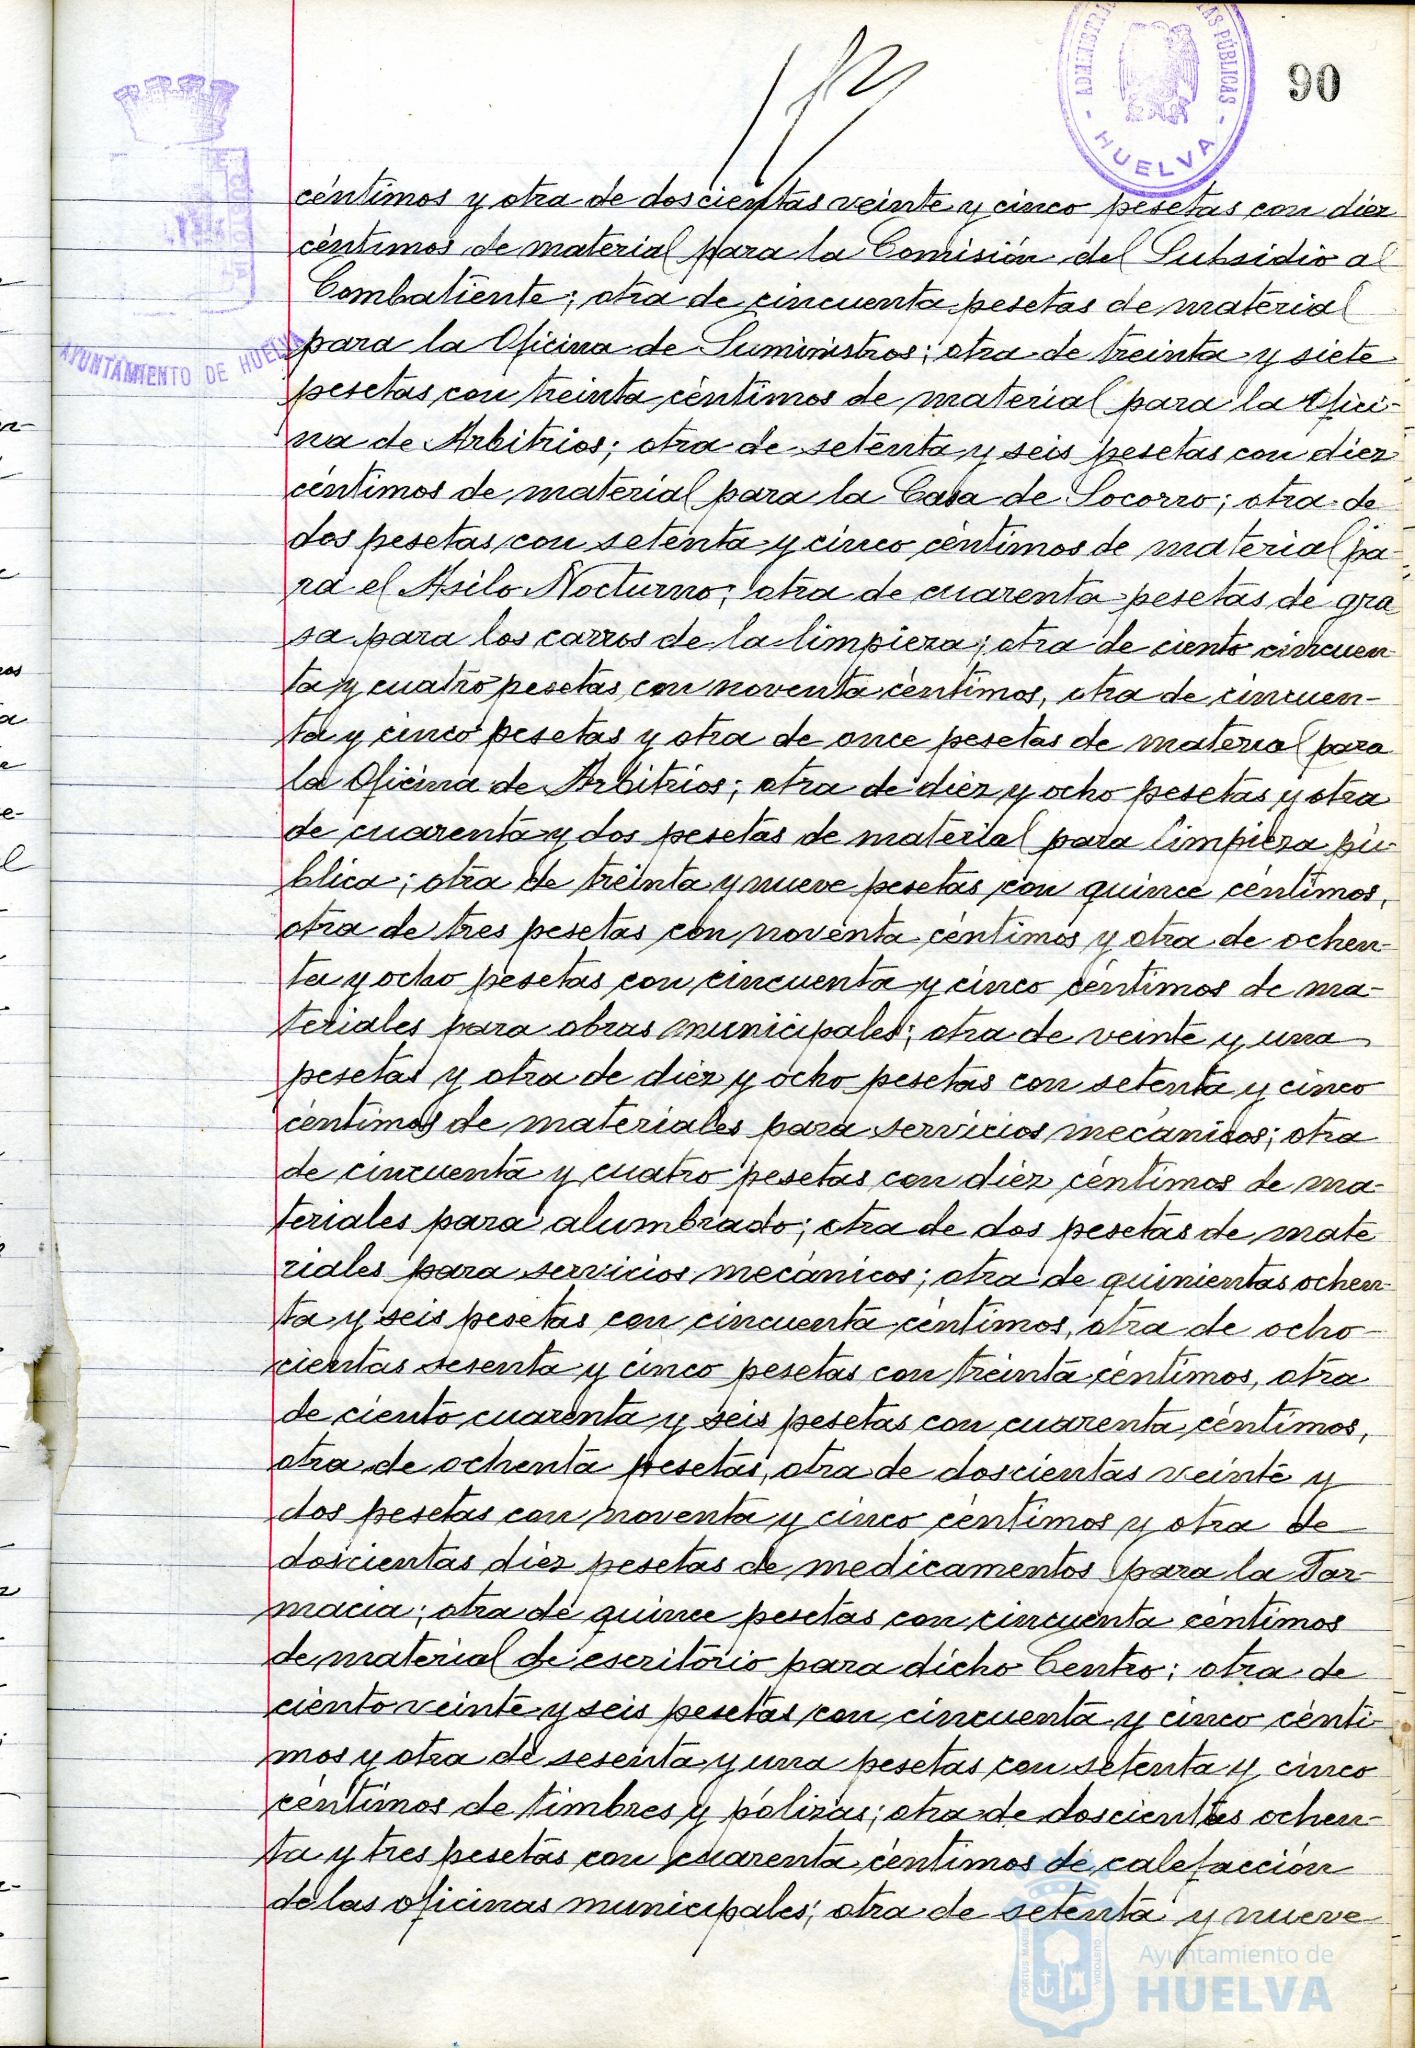 90
HUELVA
AYUNTAMIENTO DE HUELVA
céntimos y otra de doscientas veinte y cinco pesetas con diez
céntimos de material para la Comisión del Subsidio al
Combatiente; otra de cincuenta pesetas de material
para la Oficina de Suministros; otra de treinta y siete
pesetas con treinta céntimos de material para la Ofici-
na de Arbitrios; otra de setenta y seis pesetas con diez
céntimos de material para la Casa de Socorro; otra de
dos pesetas con setenta y cinco céntimos de material pa-
ra el Asilo Nocturno; otra de cuarenta pesetas de gra
sa para los carros de la limpieza; otra de ciento cincuen
ta y cuatro pesetas con noventa céntimos, otra de cincuen-
ta y cinco pesetas y otra de once pesetas de material para
la Oficina de Arbitrios; otra de diez y ocho pesetas y otra
de cuarenta y dos pesetas de material para limpieza pú-
blica; otra de treinta y nueve pesetas con quince céntimos,
otra de tres pesetas con noventa céntimos y otra de ochen-
ta y ocho pesetas con cincuenta y cinco céntimos de ma-
teriales para obras municipales; otra de veinte y una
pesetas y otra de diez y ocho pesetas con setenta y cinco
céntimos de materiales para servicios mecánicos; otra
de cincuenta y cuatro pesetas con diez céntimos de ma-
teriales para alumbrado; otra de dos pesetas de mate
riales para servicios mecánicos; otra de quinientas ochen-
ta y seis pesetas con cincuenta céntimos, otra de ocho-
cientas sesenta y cinco pesetas con treinta céntimos, otra
de ciento cuarenta y seis pesetas con cuarenta céntimos,
otra de ochenta pesetas, otra de doscientas veinte y
dos pesetas con noventa y cinco céntimos y otra de
doscientas diez pesetas de medicamentos para la Far-
macia; otra de quince pesetas con cincuenta céntimos
de material de escritorio para dicho Centro; otra de
ciento veinte y seis pesetas con cincuenta y cinco cénti-
mos y otra de sesenta y una pesetas con setenta y cinco
céntimos de timbres y pólizas; otra de doscientas ochen-
ta y tres pesetas con cuarenta céntimos de calefacción
de las oficinas municipales; otra de setenta y nueve
Ayuntamiento de
HUELVA